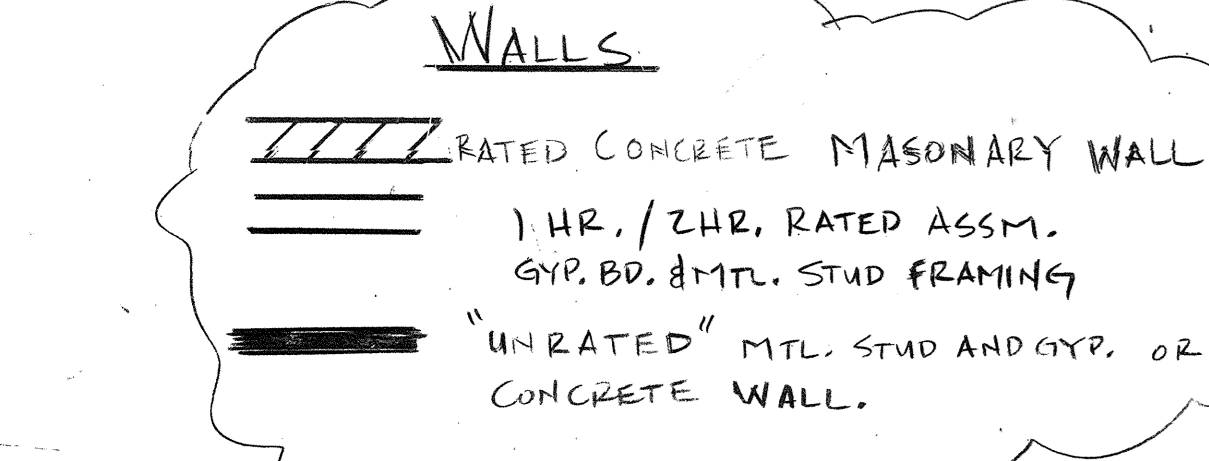 WALLS
RATED CONCRETE MASONARY WALL
1 HR. / 2HR. RATED ASSM.
GYP. BD. & MTL. STUD FRAMING
"UNRATED" MTL. STUD AND GYP. OR
CONCRETE WALL.